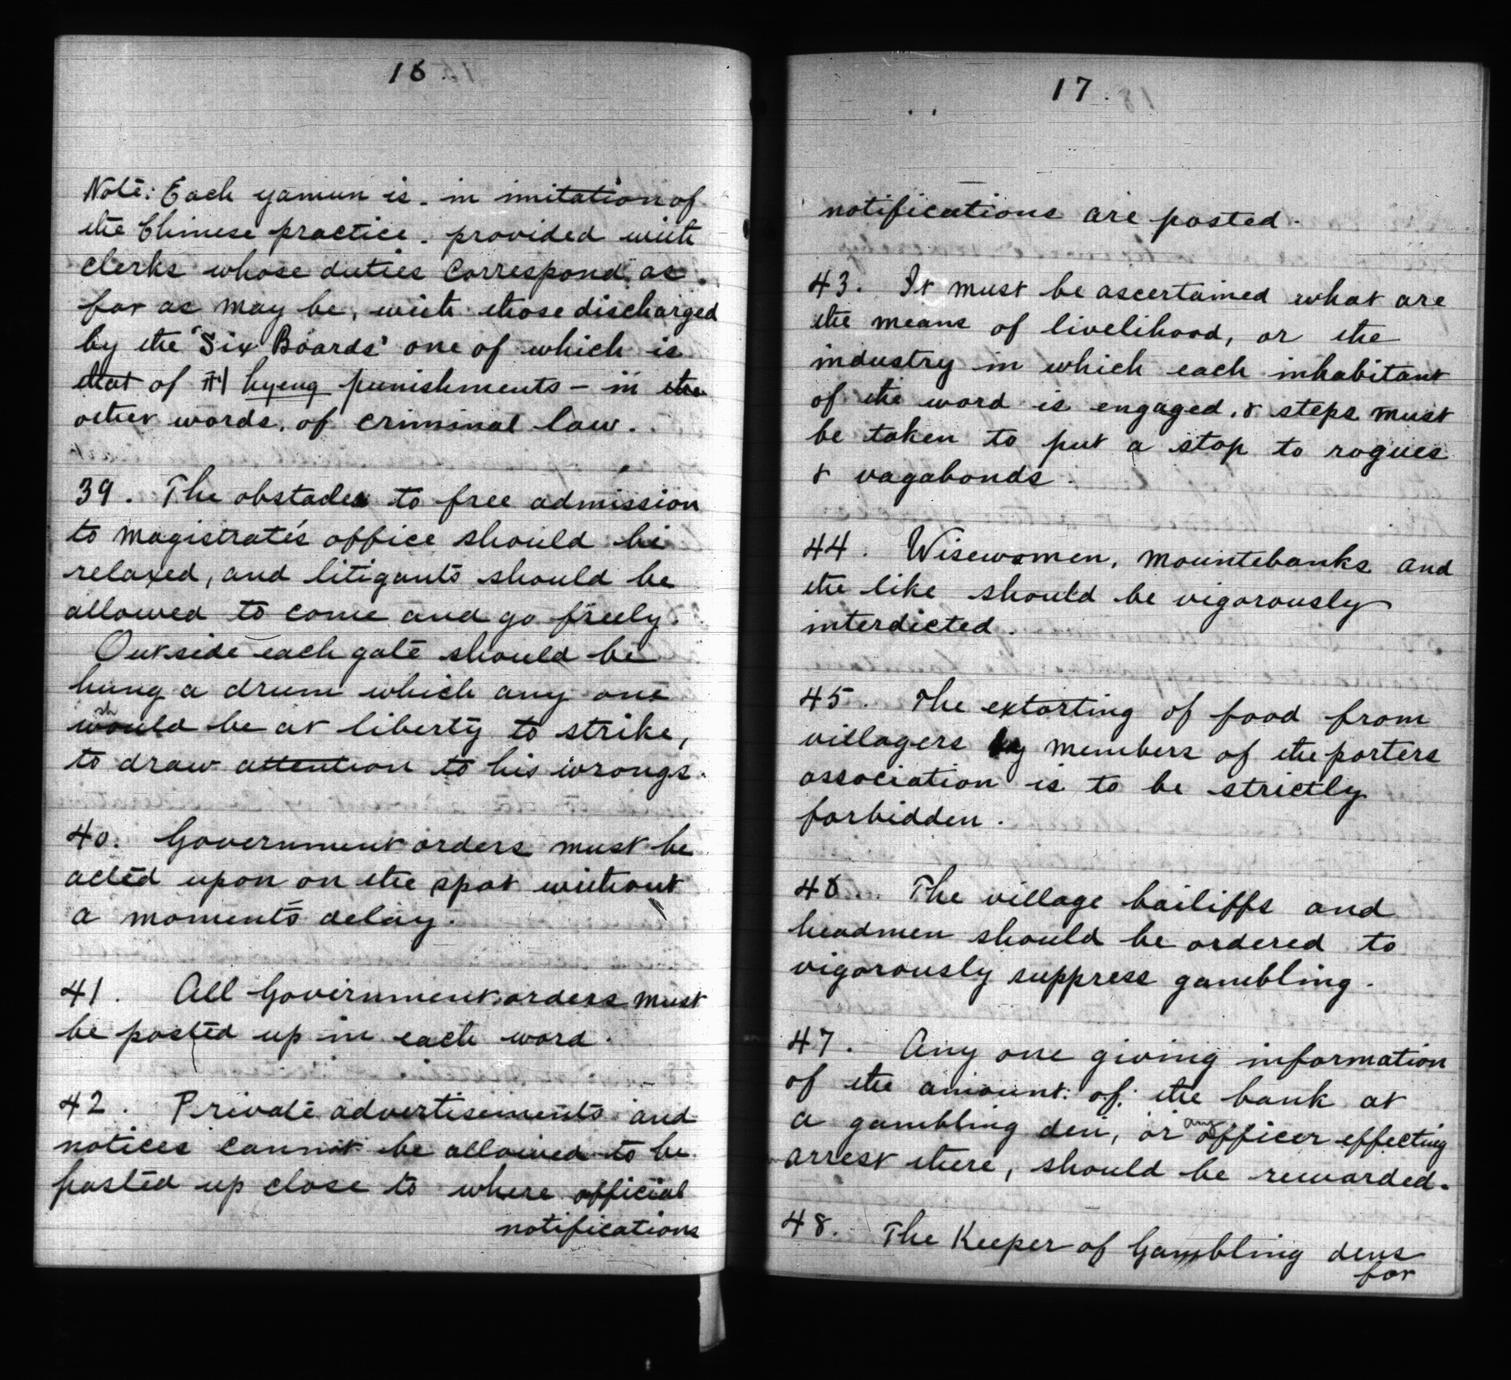 16.
Note: Each yamun is. in imitation of
the Chinese practice. provided with
clerks whose duties correspond, as
far as may be, with those discharged
by the "Six Boards" one of which is
that of 刑 hyeng punishments - in the
other words. of criminal law.
39. The obstacles to free admission
to magistrate's office should be
relaxed, and litigants should be
allowed to come and go freely.
Outside each gate should be
hung a drum which any one
should be at liberty to strike,
to draw attention to his wrongs.
40. Government orders must be
acted upon on the spot without
a moment's delay.
41. All Government orders must
be posted up in each ward.
42. Private advertisements and
notices cannot be allowed to be
posted up close to where official
notifications
17.
notifications are posted.
43. It must be ascertained what are
the means of livelihood, or the
industry in which each inhabitant
of the ward is engaged, & steps must
be taken to put a stop to rogues
& vagabonds.
44. Wisewomen, mountebanks and
the like should be vigorously
interdicted.
45. The extorting of food from
villagers by members of the porters
association is to be strictly
forbidden.
46. The village bailiffs and
headmen should be ordered to
vigorously suppress gambling.
47. Any one giving information
of the amount of the bank at
a gambling den, or any officer effecting
arrest there, should be rewarded.
48. The Keeper of Gambling dens
for